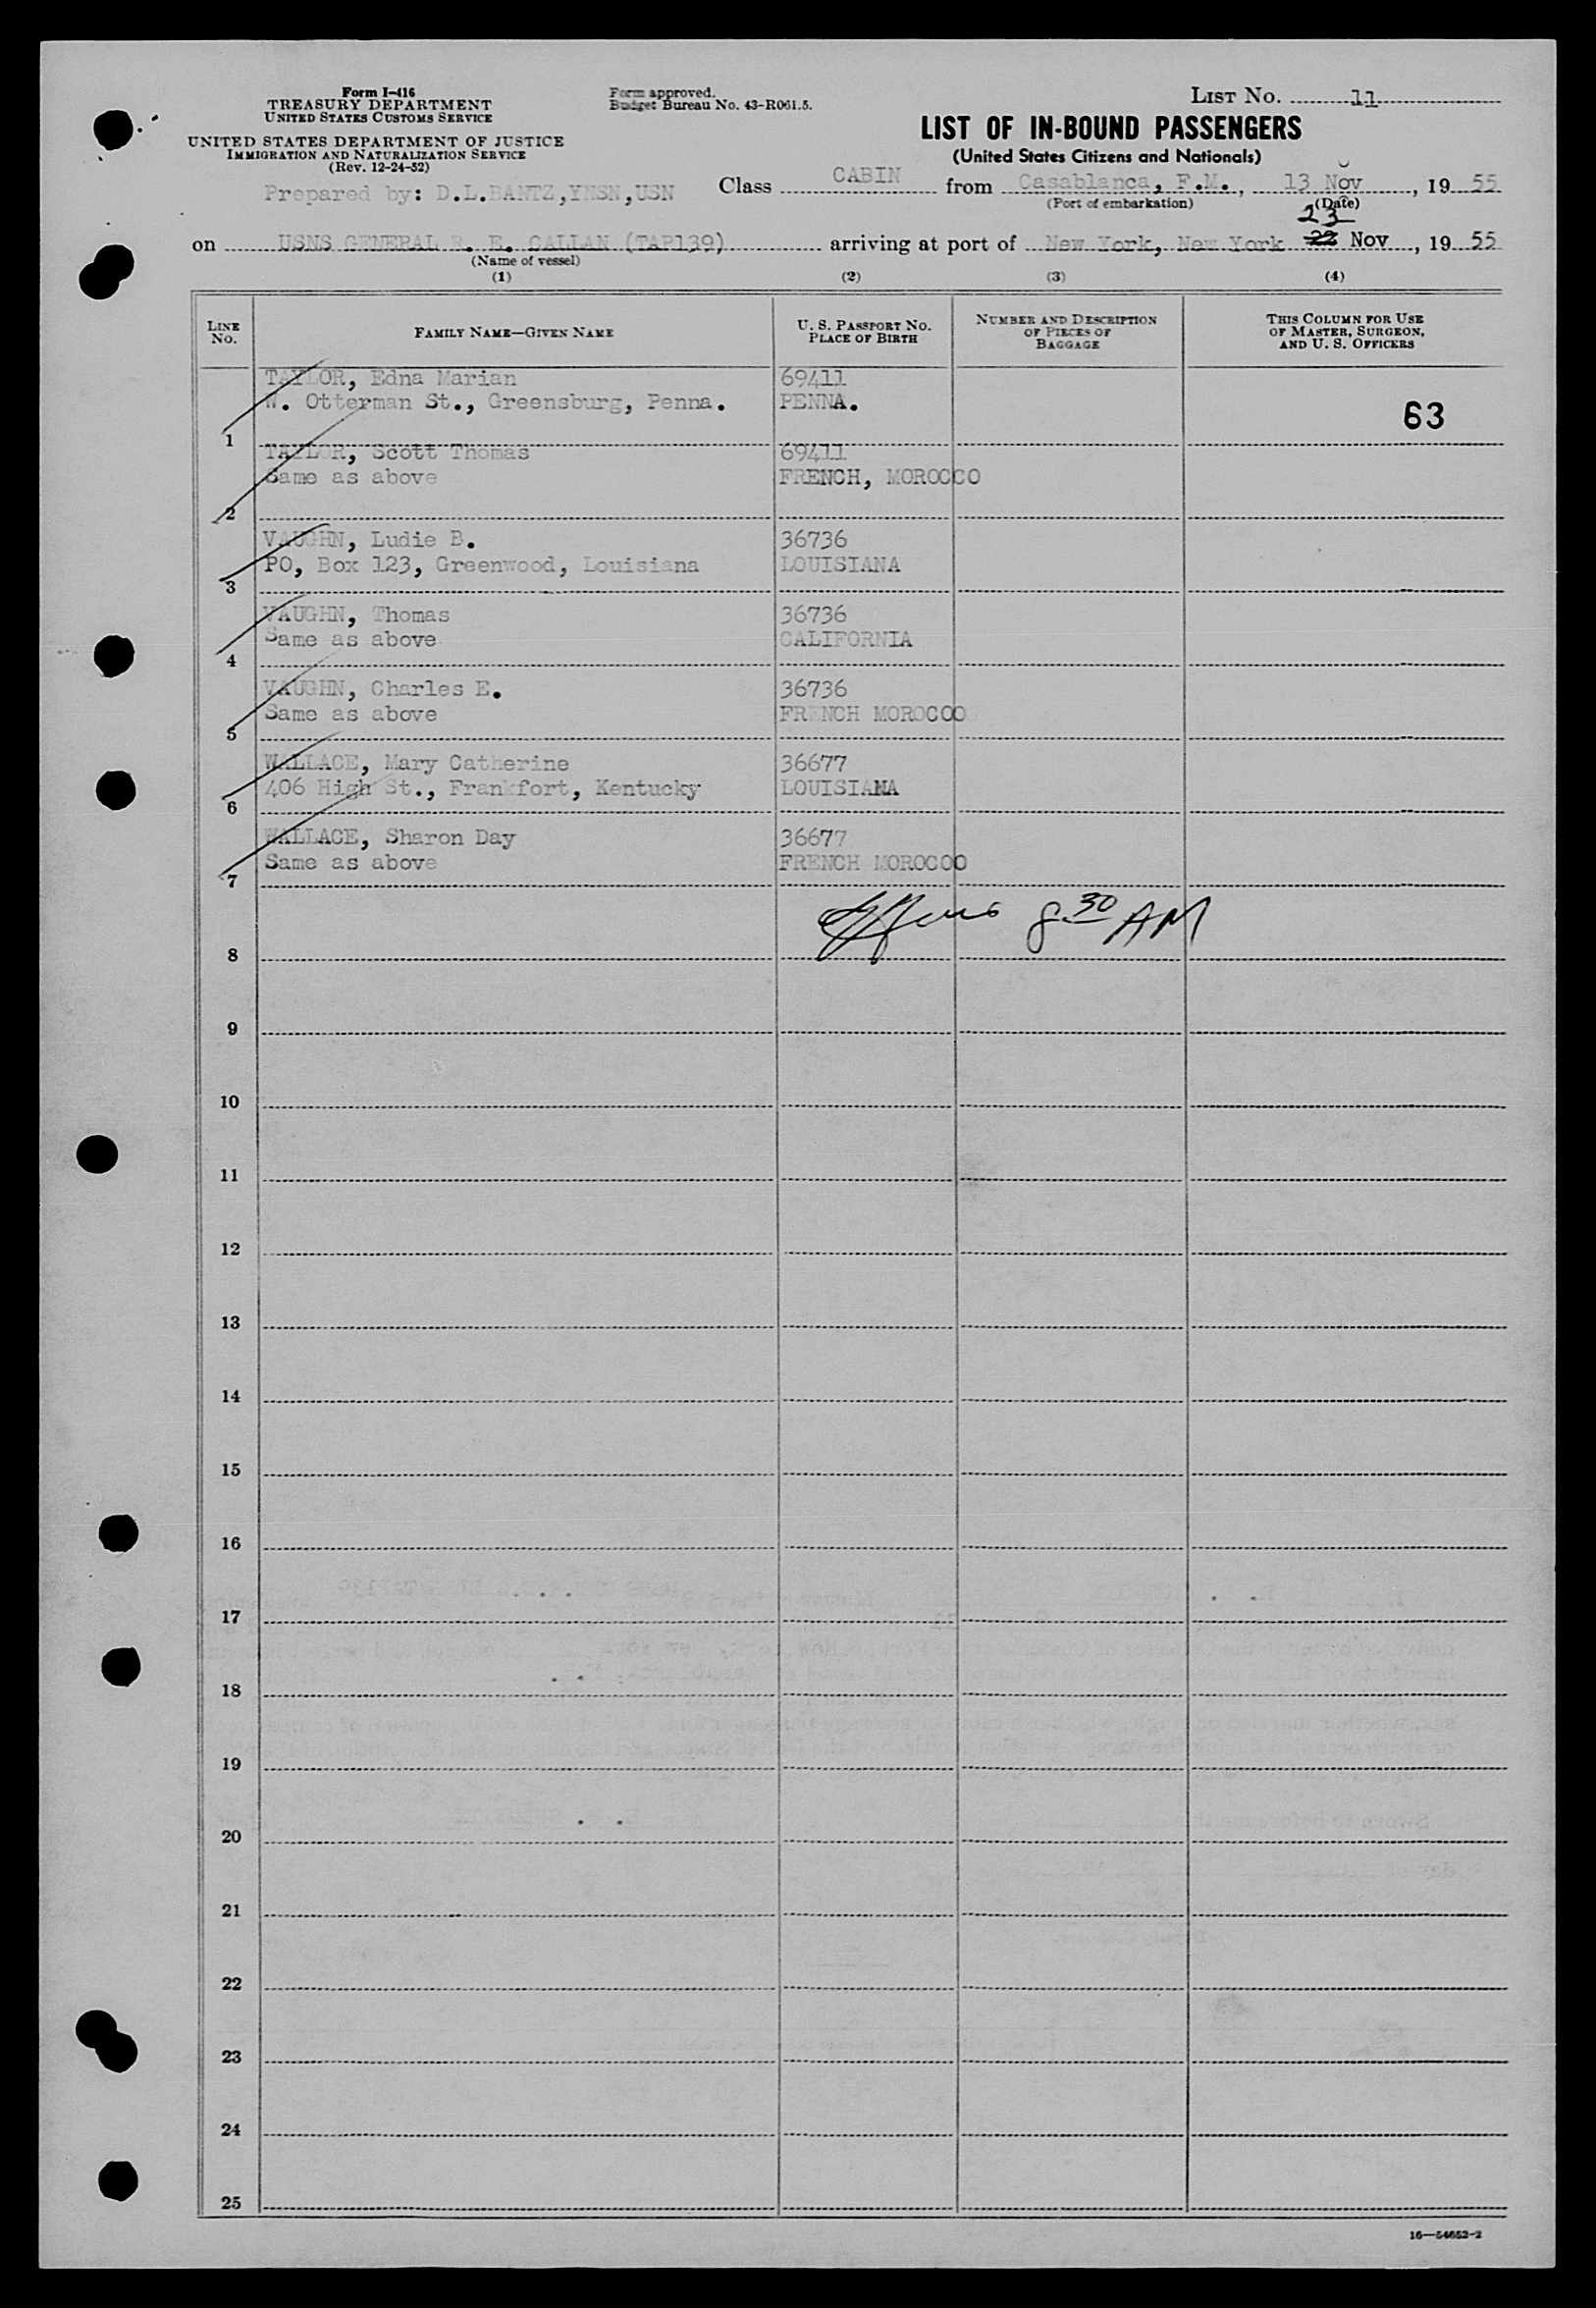 Form I-416
TREASURY DEPARTMENT
UNITED STATES CUSTOMS SERVICE
UNITED STATES DEPARTMENT OF JUSTICE
IMMIGRATION AND NATURALIZATION SERVICE
(Rev. 12-24-52)
Form approved.
Budget Bureau No. 43-R061.5.
LIST NO. 11
LIST OF IN-BOUND PASSENGERS
(United States Citizens and Nationals)
Prepared by: D.L.BANTZ,YNSN,USN
Class CABIN from Casablanca, F.M., 13 Nov, 19 55
(Port of embarkation) (Date)
23
on USNS GENERAL R. E. CALLAN (TAP139) arriving at port of New York, New York 22 Nov, 19 55
(Name of vessel)
(1) (2) (3) (4)
LINE NO. FAMILY NAME—GIVEN NAME U. S. PASSPORT NO. PLACE OF BIRTH NUMBER AND DESCRIPTION OF PIECES OF BAGGAGE THIS COLUMN FOR USE OF MASTER, SURGEON, AND U. S. OFFICERS
TAYLOR, Edna Marian 69411
W. Otterman St., Greensburg, Penna. PENNA. 63
1
TAYLOR, Scott Thomas 69411
Same as above FRENCH, MOROCCO
2
VAUGHN, Ludie B. 36736
PO, Box 123, Greenwood, Louisiana LOUISIANA
3
VAUGHN, Thomas 36736
Same as above CALIFORNIA
4
VAUGHN, Charles E. 36736
Same as above FRENCH MOROCCO
5
WALLACE, Mary Catherine 36677
406 High St., Frankfort, Kentucky LOUISIANA
6
WALLACE, Sharon Day 36677
Same as above FRENCH MOROCCO
7
8 30 AM
8
9
10
11
12
13
14
15
16
17
18
19
20
21
22
23
24
25
16—54652-2